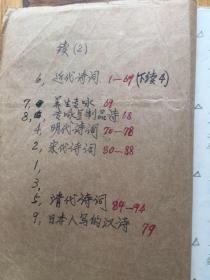 续(2)
6, 近代诗词 1—69 (下续4)
7, 养生专咏 69
8, 专咏豆制品诗 18
4, 明代诗词 70—78
2, 宋代诗词 80—88
1,
3,
5, 清代诗词 89—94
9, 日本人写的汉诗 79